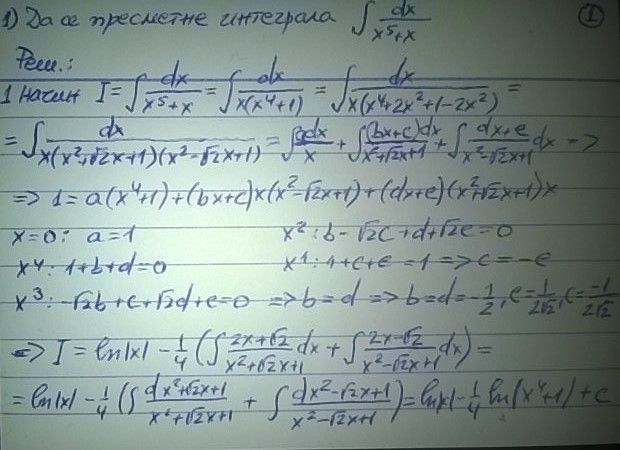 1) Да се пресметне интеграла ∫ dx/(x⁵+x) ①
Реш.:
1 начин I = ∫ dx/(x⁵+x) = ∫ dx/(x(x⁴+1)) = ∫ dx/(x(x⁴+2x²+1-2x²)) =
= ∫ dx/(x(x²+√2x+1)(x²-√2x+1)) = ∫ adx/x + ∫ (bx+c)dx/(x²+√2x+1) + ∫ (dx+e)/(x²-√2x+1) dx ->
=> 1 = a(x⁴+1)+(bx+c)x(x²-√2x+1)+(dx+e)(x²+√2x+1)x
x=0: a=1 x²: b-√2c+d+√2e=0
x⁴: 1+b+d=0 x¹: 1+c+e=1 => c=-e
x³: -√2b+c+√2d+e=0 => b=d => b=d=-1/2, e=1/(2√2), c=-1/(2√2)
=> I = ln|x| - 1/4 (∫ (2x+√2)/(x²+√2x+1) dx + ∫ (2x-√2)/(x²-√2x+1) dx) =
= ln|x| - 1/4 (∫ (dx²+√2x+1)/(x²+√2x+1) + ∫ (dx²-√2x+1)/(x²-√2x+1)) = ln|x| - 1/4 ln(x⁴+1) + c